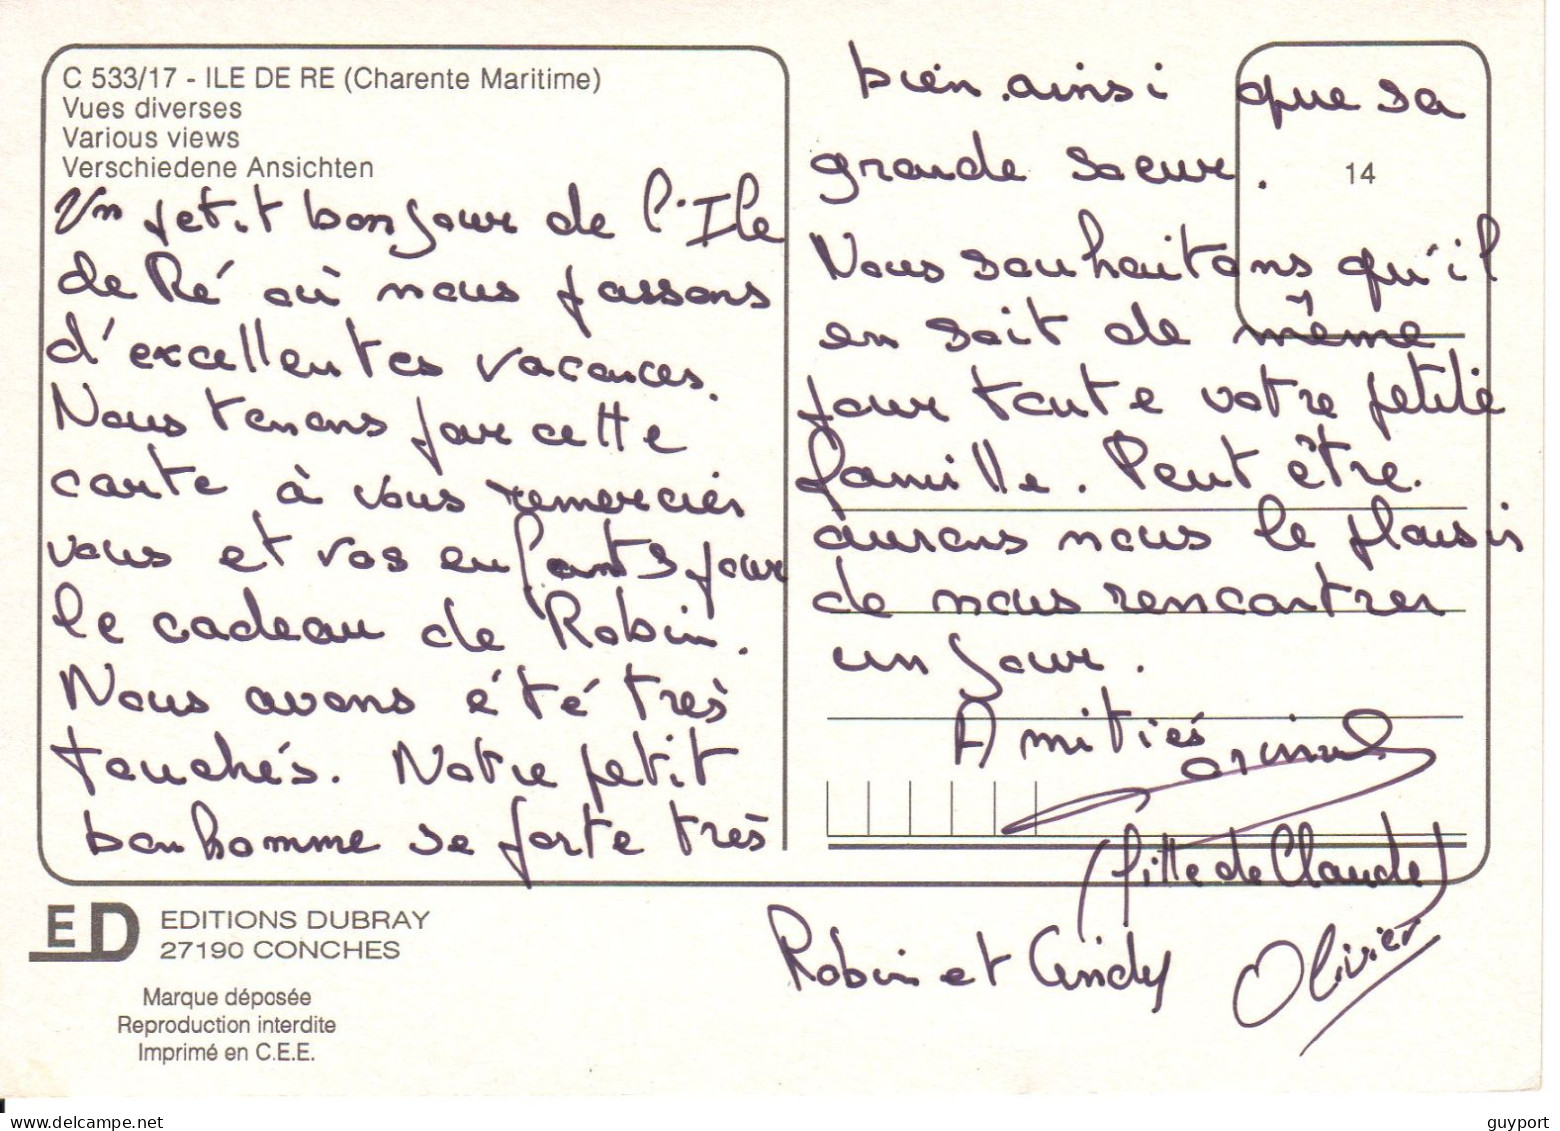 C 533/17 - ILE DE RE (Charente Maritime)
Vues diverses
Various views
Verschiedene Ansichten
Un petit bonjour de l'Ile
de Ré où nous passons
d'excellentes vacances.
Nous tenons par cette
carte à vous remercier
vous et vos enfants pour
le cadeau de Robin.
Nous avons été très
touchés. Notre petit
bonhomme se porte très
bien ainsi que sa
grande soeur.
14
Nous souhaitons qu'il
en soit de même
pour toute votre petite
famille. Peut être
aurons nous le plaisir
de nous rencontrer
un jour.
Amitiés
(fille de Claude)
Robin et Cindy Olivier
ED EDITIONS DUBRAY
27190 CONCHES
Marque déposée
Reproduction interdite
Imprimé en C.E.E.
www.delcampe.net
guyport